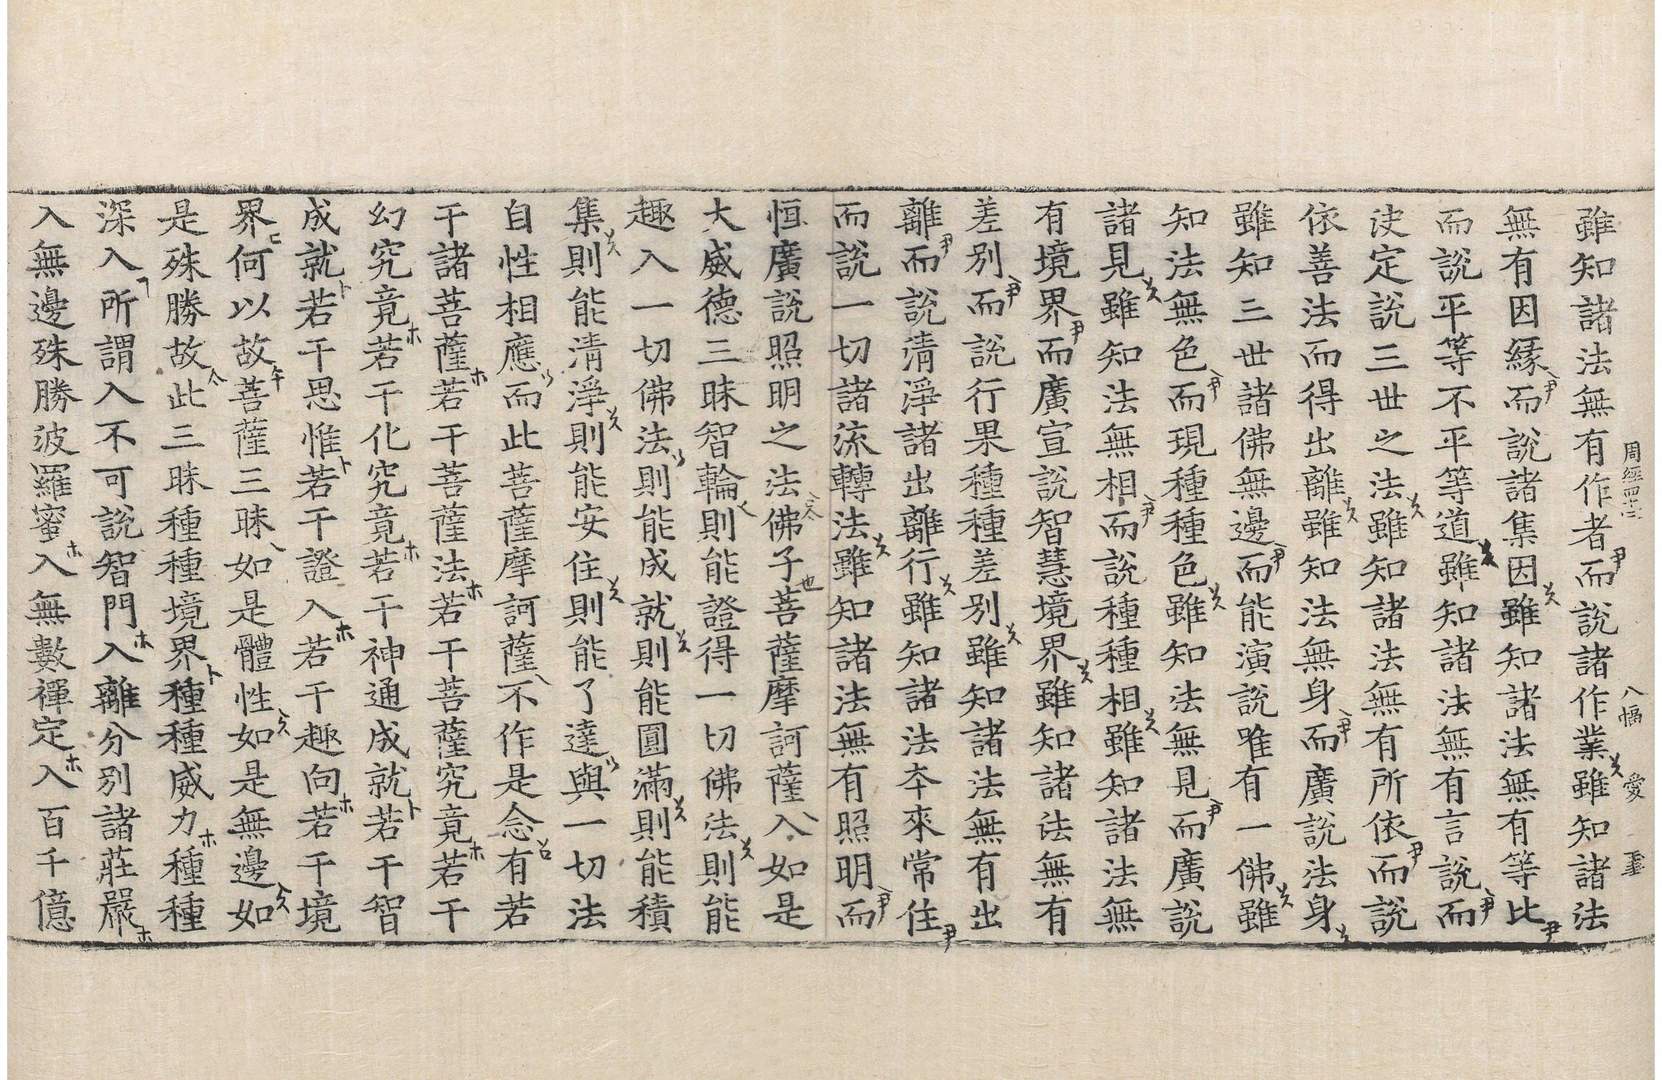 雖知諸法無有作者而說諸作業雖知諸法
無有因緣而說諸集因雖知諸法無有等比
而說平等不平等道雖知諸法無有言說而
決定說三世之法雖知諸法無有所依而說
依善法而得出離雖知法無身而廣說法身
雖知三世諸佛無邊而能演說唯有一佛雖
知法無色而現種種色雖知法無見而廣說
諸見雖知法無相而說種種相雖知諸法無
有境界而廣宣說智慧境界雖知諸法無有
差別而說行果種種差別雖知諸法無有出
離而說清淨諸出離行雖知諸法本來常住
而說一切諸流轉法雖知諸法無有照明而
恒廣說照明之法佛子菩薩摩訶薩入如是
大威德三昧智輪則能證得一切佛法則能
趣入一切佛法則能成就則能圓滿則能積
集則能清淨則能安住則能了達與一切法
自性相應而此菩薩摩訶薩不作是念有若
干諸菩薩若干菩薩法若干菩薩究竟若干
幻究竟若干化究竟若干神通成就若干智
成就若干思惟若干證入若干趣向若干境
界何以故菩薩三昧如是體性如是無邊如
是殊勝故此三昧種種境界種種威力種種
深入所謂入不可說智門入離分別諸莊嚴
入無邊殊勝波羅蜜入無數禪定入百千億